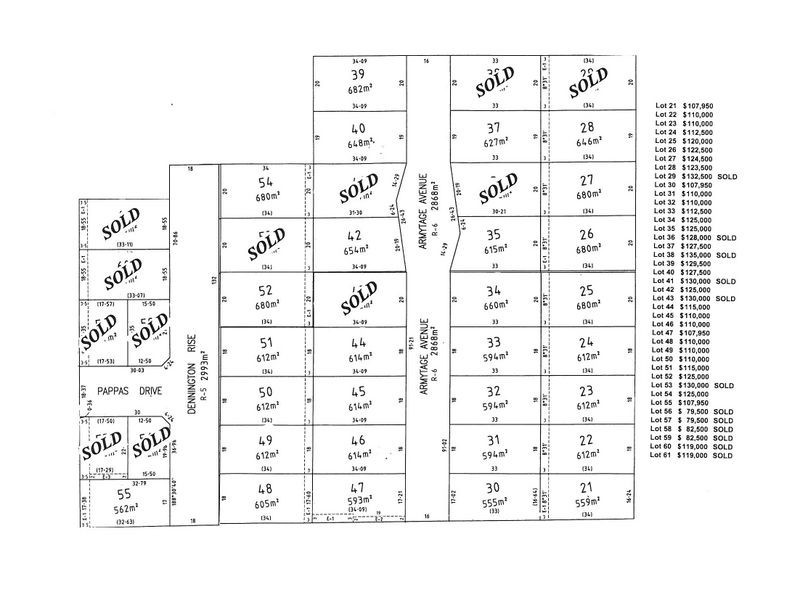 34-09
16
33
(34)
39
682m²
SOLD
SOLD
34-09
33
(34)
40
648m²
37
627m²
28
646m²
34-09
33
(34)
18
34
54
680m²
(34)
SOLD
31-30
SOLD
30-21
27
680m²
(34)
ARMYTAGE AVENUE
R-6 2868m²
SOLD
(33-11)
SOLD
(34)
42
654m²
35
615m²
26
680m²
(34)
SOLD
(33-07)
52
680m²
(34)
SOLD
34
660m²
(34)
25
680m²
(34)
(17-57) 15-50
SOLD
SOLD
(17-53) 12-50
30-03
51
612m²
(34)
44
614m²
33
594m²
24
612m²
(34)
DENNINGTON RISE
R-5 2993m²
ARMYTAGE AVENUE
R-6 2868m²
PAPPAS DRIVE
30
50
612m²
(34)
45
614m²
32
594m²
23
612m²
(34)
(17-50) 12-50
SOLD
SOLD
(17-29) 15-50
49
612m²
(34)
46
614m²
31
594m²
22
612m²
(34)
32-79
55
562m²
(32-63)
18
48
605m²
(34)
47
593m²
(34-09)
19
16
30
555m²
(33)
21
559m²
(34)
Lot 21 $107,950
Lot 22 $110,000
Lot 23 $110,000
Lot 24 $112,500
Lot 25 $120,000
Lot 26 $122,500
Lot 27 $124,500
Lot 28 $123,500
Lot 29 $132,500 SOLD
Lot 30 $107,950
Lot 31 $110,000
Lot 32 $110,000
Lot 33 $112,500
Lot 34 $125,000
Lot 35 $125,000
Lot 36 $128,000 SOLD
Lot 37 $127,500
Lot 38 $135,000 SOLD
Lot 39 $129,500
Lot 40 $127,500
Lot 41 $130,000 SOLD
Lot 42 $125,000
Lot 43 $130,000 SOLD
Lot 44 $115,000
Lot 45 $110,000
Lot 46 $110,000
Lot 47 $107,950
Lot 48 $110,000
Lot 49 $110,000
Lot 50 $110,000
Lot 51 $115,000
Lot 52 $125,000
Lot 53 $130,000 SOLD
Lot 54 $125,000
Lot 55 $107,950
Lot 56 $ 79,500 SOLD
Lot 57 $ 79,500 SOLD
Lot 58 $ 82,500 SOLD
Lot 59 $ 82,500 SOLD
Lot 60 $119,000 SOLD
Lot 61 $119,000 SOLD